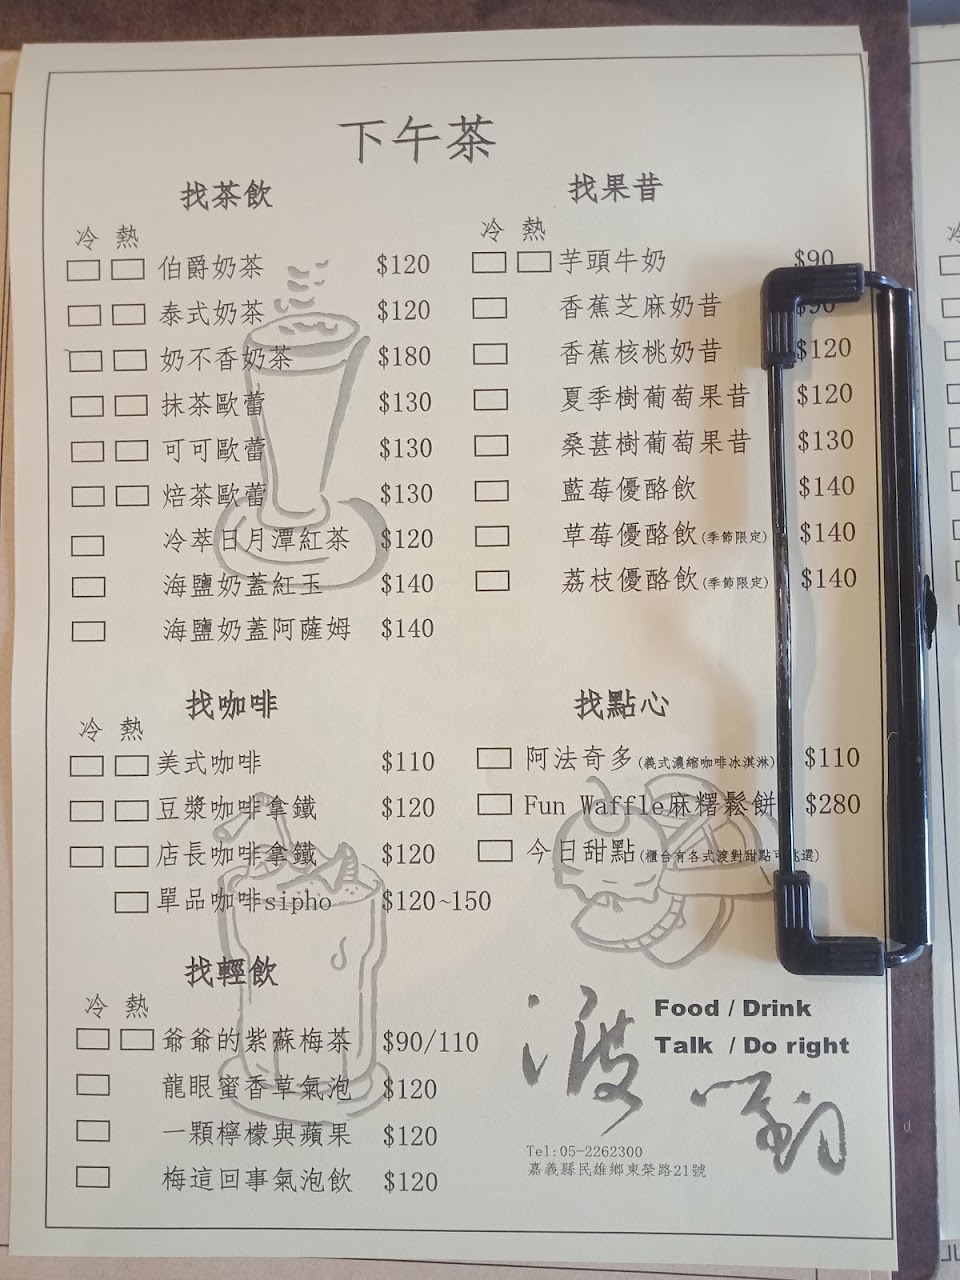 下午茶
找茶飲
冷 熱
伯爵奶茶 $120
泰式奶茶 $120
奶不香奶茶 $180
抹茶歐蕾 $130
可可歐蕾 $130
焙茶歐蕾 $130
冷萃日月潭紅茶 $120
海鹽奶蓋紅玉 $140
海鹽奶蓋阿薩姆 $140
找果昔
冷 熱
芋頭牛奶 $90
香蕉芝麻奶昔 $90
香蕉核桃奶昔 $120
夏季樹葡萄果昔 $120
桑葚樹葡萄果昔 $130
藍莓優酪飲 $140
草莓優酪飲(季節限定) $140
荔枝優酪飲(季節限定) $140
找咖啡
冷 熱
美式咖啡 $110
豆漿咖啡拿鐵 $120
店長咖啡拿鐵 $120
單品咖啡sipho $120~150
找點心
阿法奇多(義式濃縮咖啡冰淇淋) $110
Fun Waffle麻糬鬆餅 $280
今日甜點(櫃台有各式波對甜點可挑選)
找輕飲
冷 熱
爺爺的紫蘇梅茶 $90/110
龍眼蜜香草氣泡 $120
一顆檸檬與蘋果 $120
梅這回事氣泡飲 $120
Food / Drink
Talk / Do right
Tel:05-2262300
嘉義縣民雄鄉東榮路21號